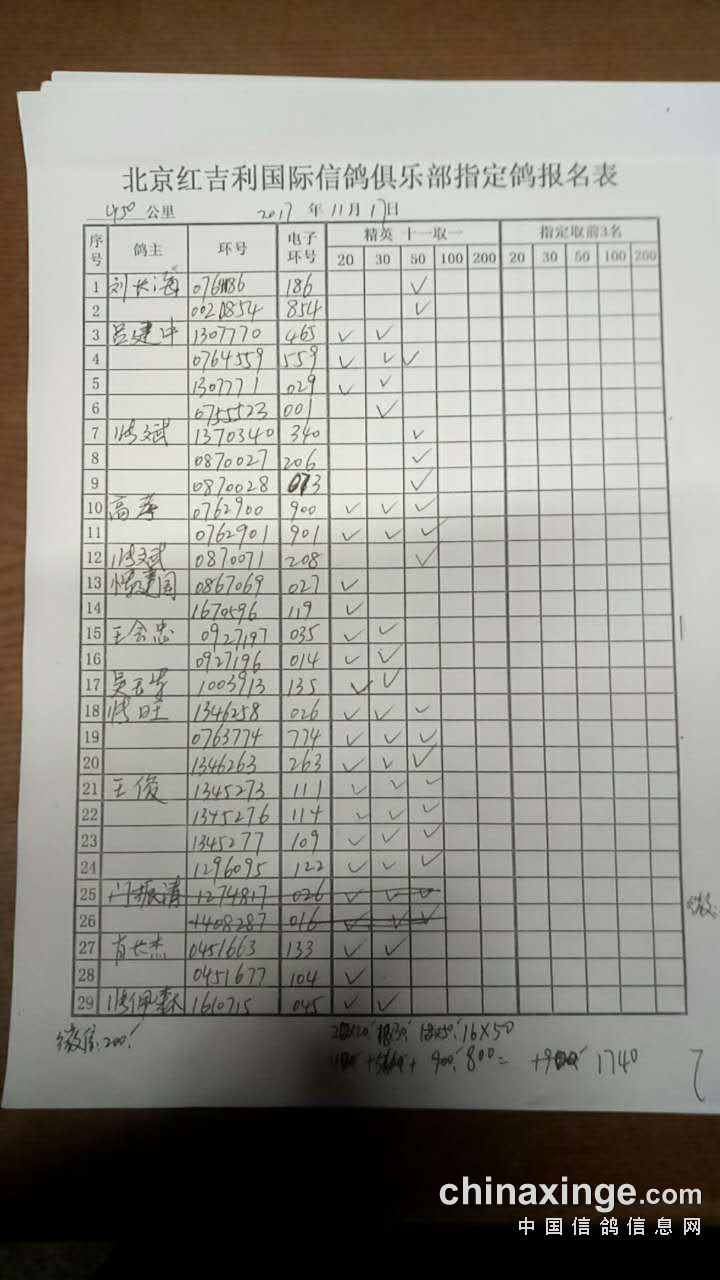 北京红吉利国际信鸽俱乐部指定鸽报名表
450 公里 2017 年 11 月 17 日
序号 鸽主 环号 电子环号 精英 十一取一 指定取前3名
20 30 50 100 200 20 30 50 100 200
1 刘长海 186 ✓
2 854 ✓
3 吕建中 1307770 465 ✓ ✓
4 0764559 559 ✓ ✓ ✓
5 1307771 029 ✓ ✓
6 0755523 001 ✓
7 张斌 1370340 340 ✓
8 0870027 206 ✓
9 0870028 073 ✓
10 高 0762900 900 ✓ ✓ ✓
11 0762901 901 ✓ ✓ ✓
12 张斌 0870071 208 ✓
13 建国 0867069 027 ✓
14 1670596 119 ✓
15 王会忠 0927197 035 ✓ ✓
16 0927196 014 ✓ ✓
17 吴玉 1003913 135 ✓ ✓
18 张旺 1346258 026 ✓ ✓ ✓
19 0763774 774 ✓ ✓ ✓
20 1346263 263 ✓ ✓ ✓
21 王俊 1345273 111 ✓ ✓ ✓
22 1345276 114 ✓ ✓ ✓
23 1345277 109 ✓ ✓ ✓
24 1296095 122 ✓ ✓ ✓
25 门振清 1274817 026 ✓ ✓ ✓
26 1408287 016 ✓ ✓ ✓
27 肖长杰 0451663 133 ✓ ✓
28 0451677 104 ✓
29 张佩森 1610715 045 ✓ ✓
16×50
200
900 800= 1740
chinaxinge.com
中国信鸽信息网